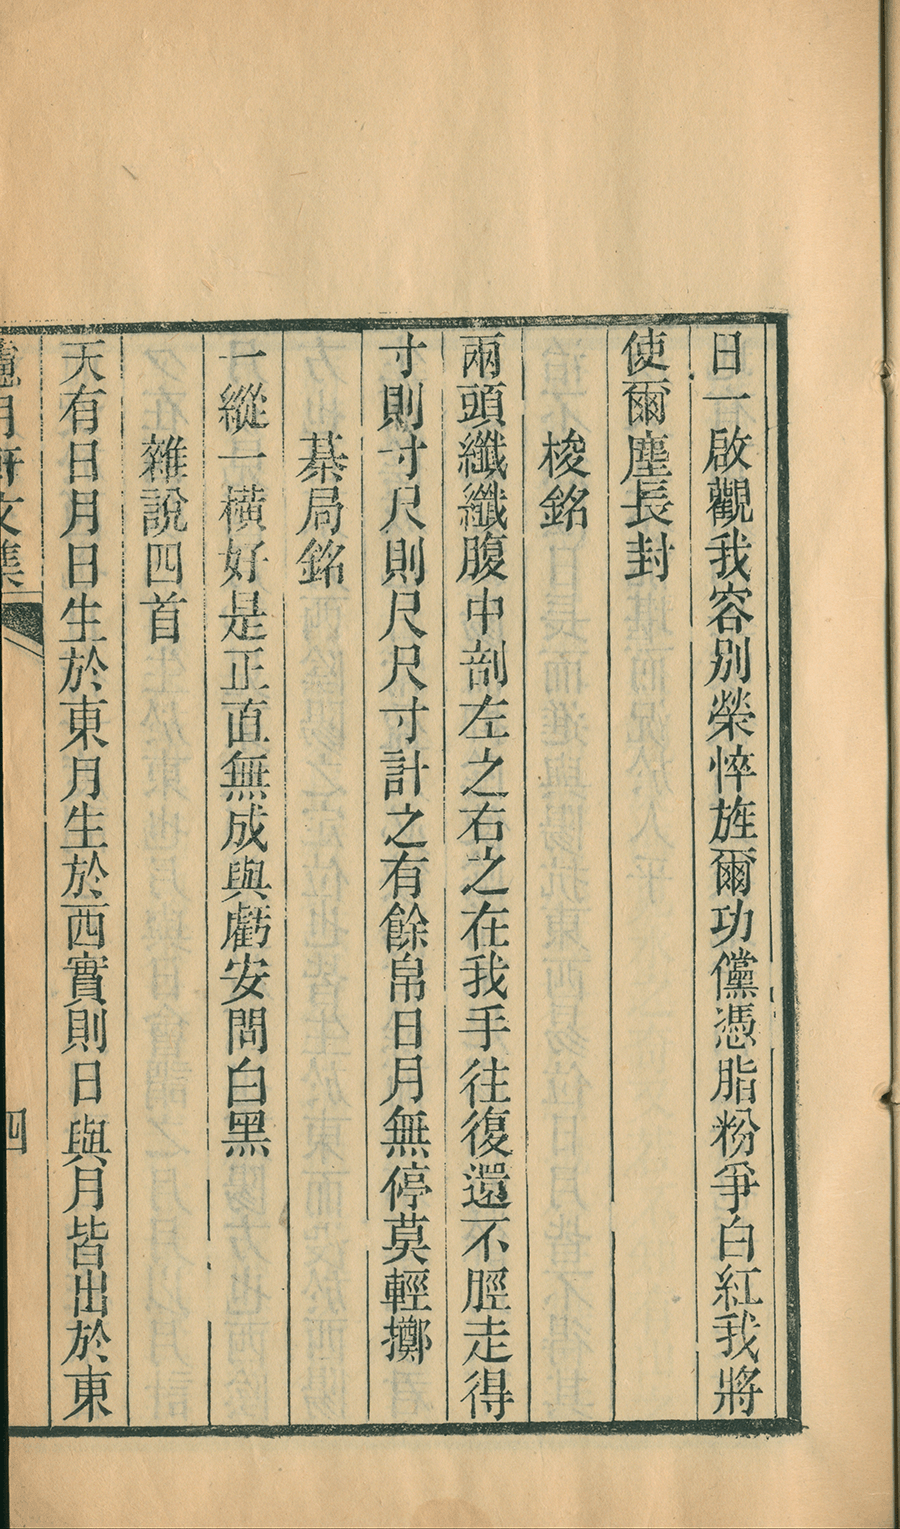 日一啟觀我容別榮悴旌爾功儻憑脂粉爭白紅我將
使爾塵長封
梭銘
兩頭纖纖腹中剖左之右之在我手往復還不脛走得
寸則寸尺則尺尺寸計之有餘帛日月無停莫輕擲
棊局銘
一縱一橫好是正直無成與虧安問白黑
雜說四首
天有日月日生於東月生於西實則日與月皆出於東
月軒文集
四